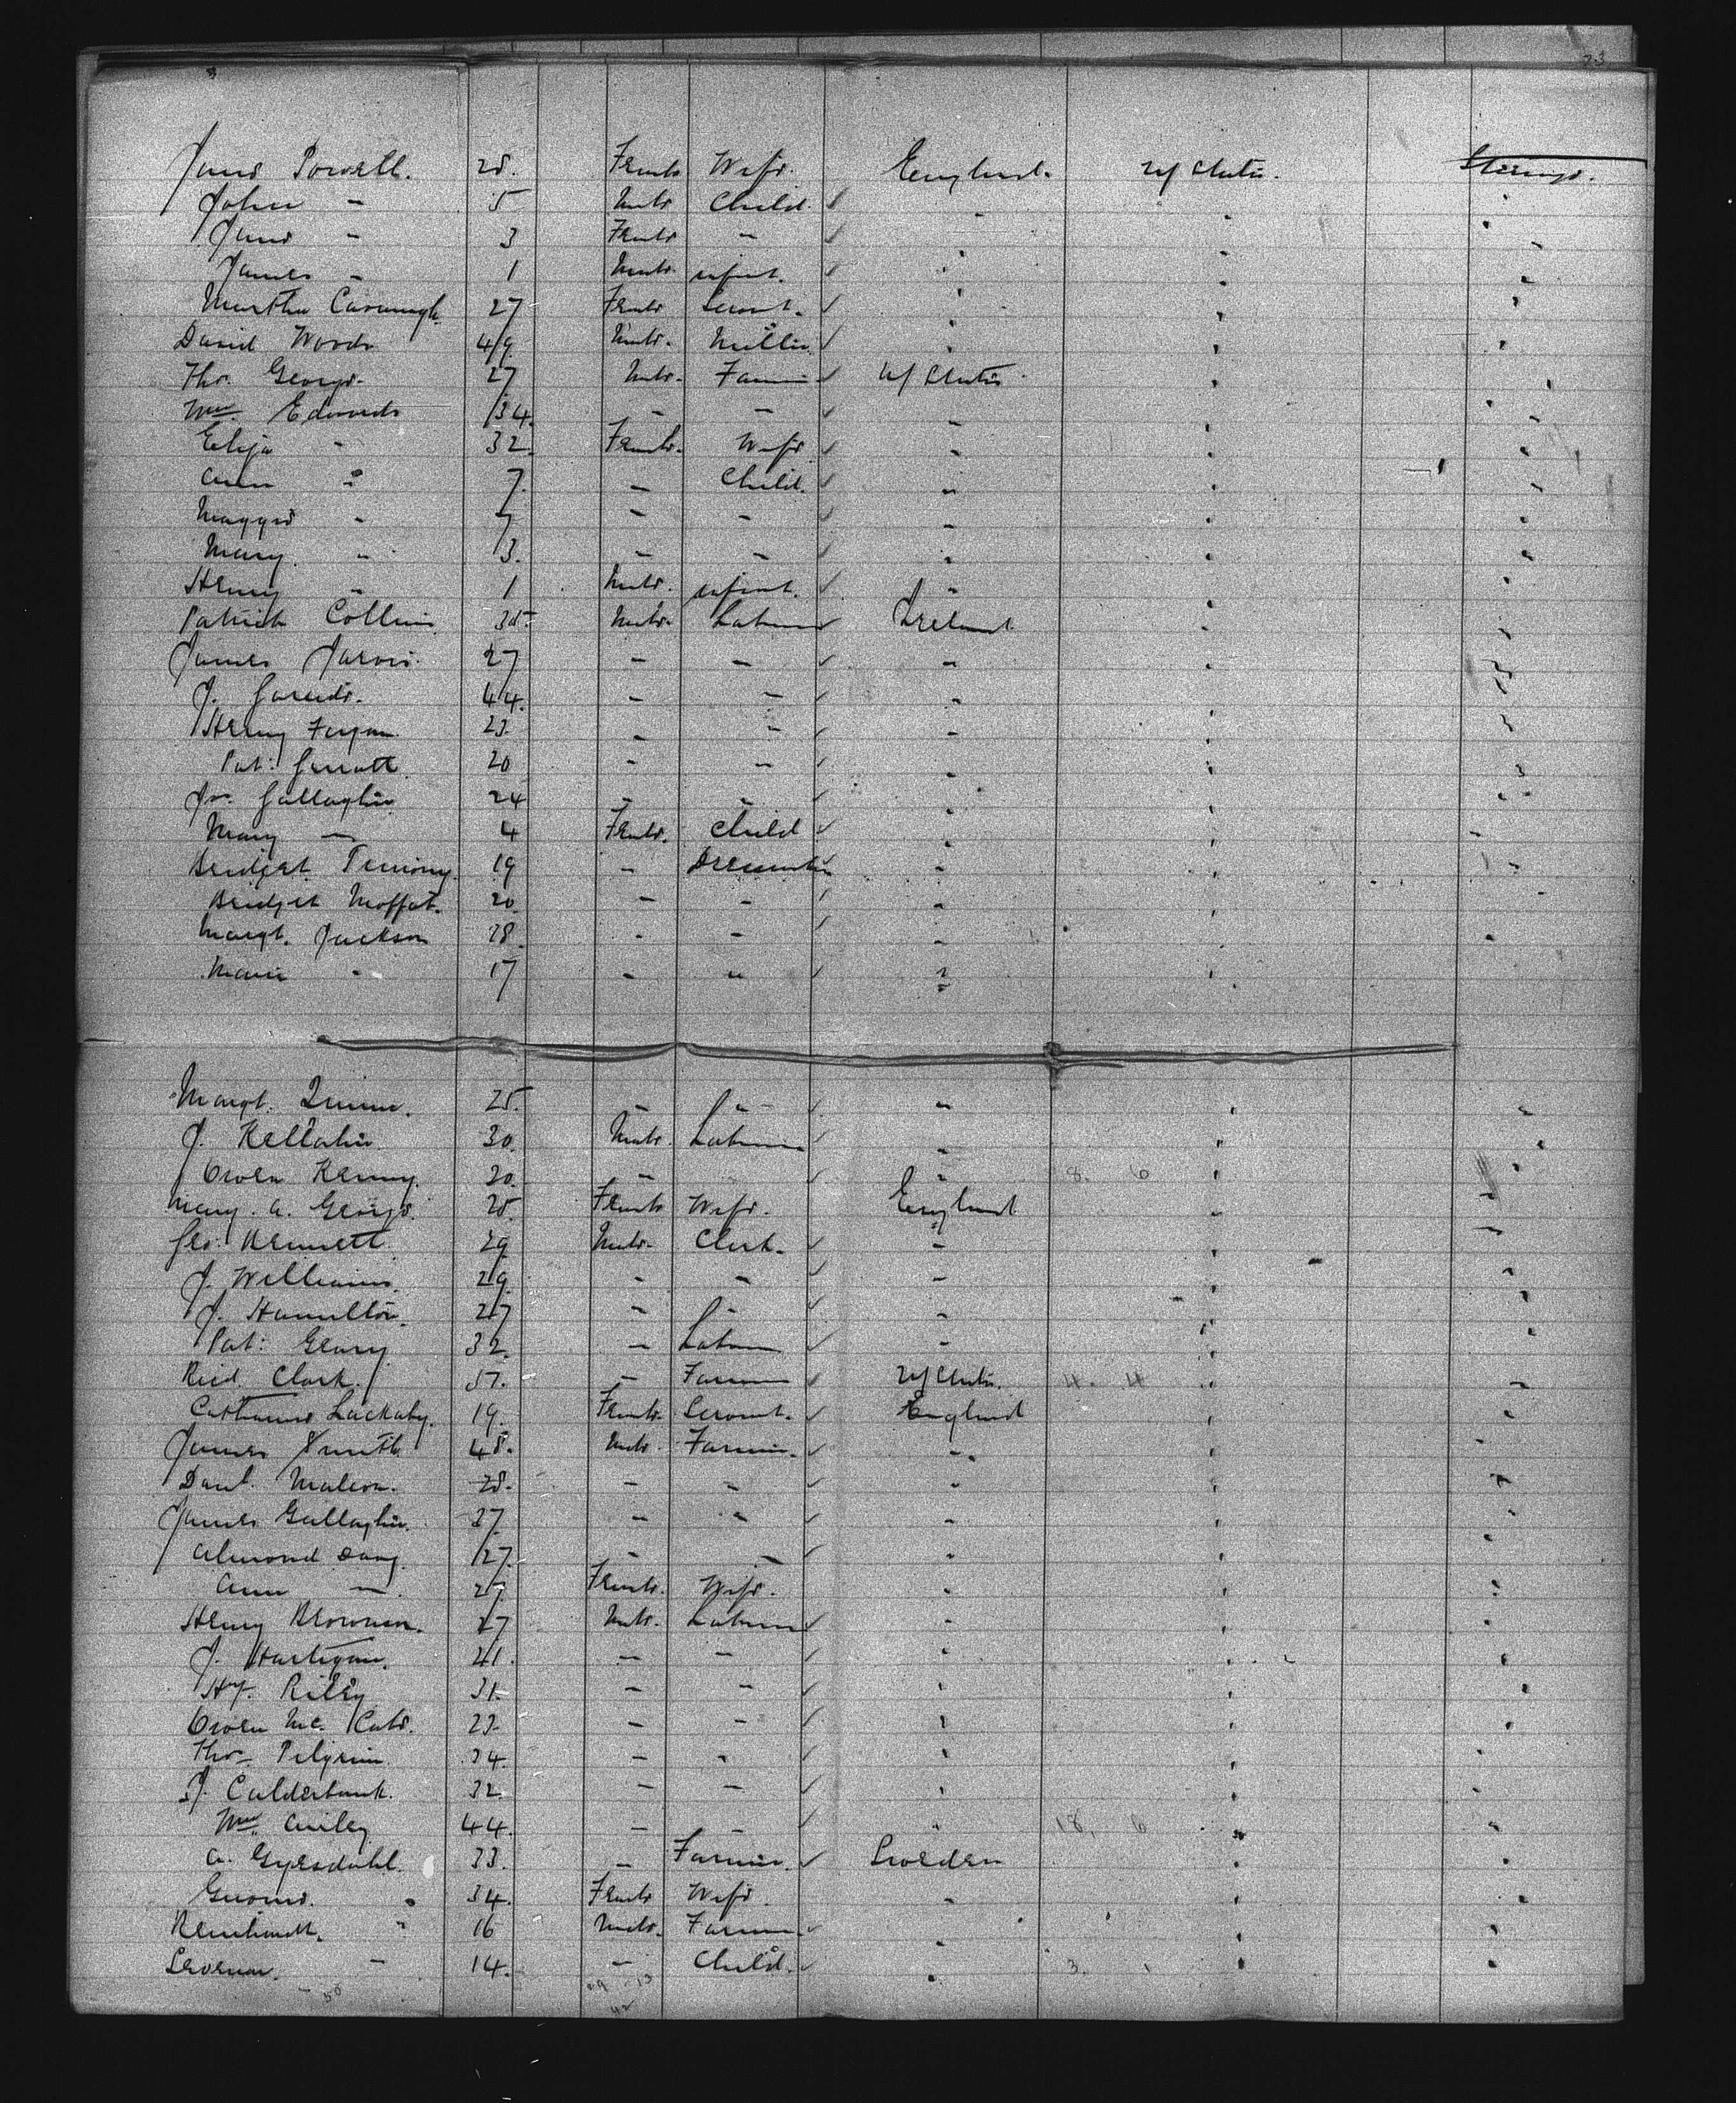 23
Jane Powell. 28. Female Wife. England. U/States. Steerage.
John - 5 Male Child. "
Jane - 3 Female - "
James - 1 Male. infant. "
Martha Cavanagh. 27 Female Servant. "
David Woods 49. Male. Miller "
Thos. George. 27 Male. Farmer U/States "
Wm. Edwards 34. - - "
Eliza - 32. Female. Wife "
Ann " 7. - Child. "
Maggie - 7 - - "
Mary. " 3. - - "
Henry " 1 Male. infant. "
Patrick Collins 35. Male. Labourer Ireland "
James Jarvis. 27 - - - "
J. 44. - - - "
Henry 23. - - - "
Pat: 20 - - - "
Jno. Gallagher 24 - - - "
Mary - 4 Female. Child "
Bridget 19 - " "
Bridget Moffat. 20. - - " "
Margt. Jackson 28. - - " "
Marie " 17 - " " "
Margt. Quinn. 25. - - " "
J. Kellaher 30. Male. Labourer " "
Owen Kenny. 20. - " 8. 6 "
Mary. A. George. 25. Female Wife. England "
Geo. Bennett. 29 Male. Clerk. - "
J. Williams. 29. - - - "
J. Hamilton. 27 - - " "
Pat: Geary 32. - Labourer - "
Reid Clark. 57. - Farmer U/States. 4. 4 "
Catherine Lackaby. 19. Female. Servant. England "
James Smith 48. Male. Farmer. " "
Danl. 28. - - " "
James Gallagher. 37. - - " "
Almond 27. - - " "
Ann - 27. Female. Wife. " "
Henry 27 Male. Labourer " "
J. Hartigan. 41. - - " "
Hy. Riley 31. - - " "
Owen Mc. Cabe. 23. - - " "
Thos. Pilgrim. 34. - - " "
J. Calderbank. 32. - - " "
Wm. 44. - - " 18. 6 "
A. Gyesdahl. 33. - Farmer. Sweden "
34. Female Wife. - "
16 Male. Farmer. " "
14. - Child. " 3. 1 "
50 29 - 13
42